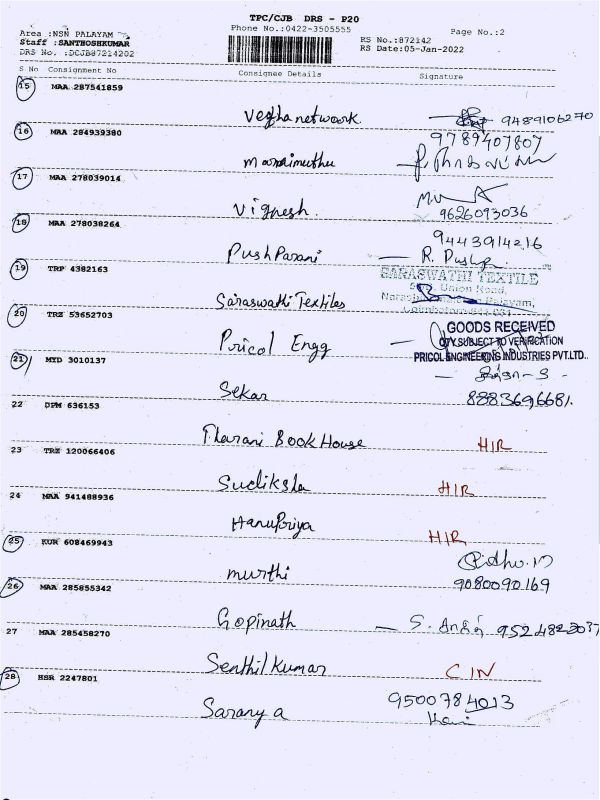 TPC/CJB DRS - P20
Area :NSN PALAYAM
Phone No.:0422-3505555
Page No.:2
Staff :SANTHOSHKUMAR
RS No.:872142
DRS No. :DCJB87214202
RS Date:05-Jan-2022
S No Consignment No Consignee Details Signature
15 MAA 287541859
Vegha network 9489106270
16 MAA 284939380
9789407807
Marimuthu
17 MAA 278039014
Vignesh. 9626093036
18 MAA 278038264
9443914216
Pushparani R. Pushpa
19 TRP 4382163
SARASWATHI TEXTILE
Union Road,
Saraswathi Textiles
Palayam,
20 TRZ 53652703
GOODS RECEIVED
Pricol Engg
QTY.SUBJECT TO VERIFICATION
PRICOL ENGINEERING INDUSTRIES PVT.LTD.
21 MYD 3010137
Sekar 8883696681.
22 DPM 636153
Tharani Book House HIR
23 TRZ 120066406
Sudiksha HIR
24 MAA 941488936
Hanupriya HIR
25 KUR 608469943
murthi
9080090169
26 MAA 285855342
Gopinath
27 MAA 285458270
Senthil Kumar CIN
28 HSR 2247801
9500784013
Saranya